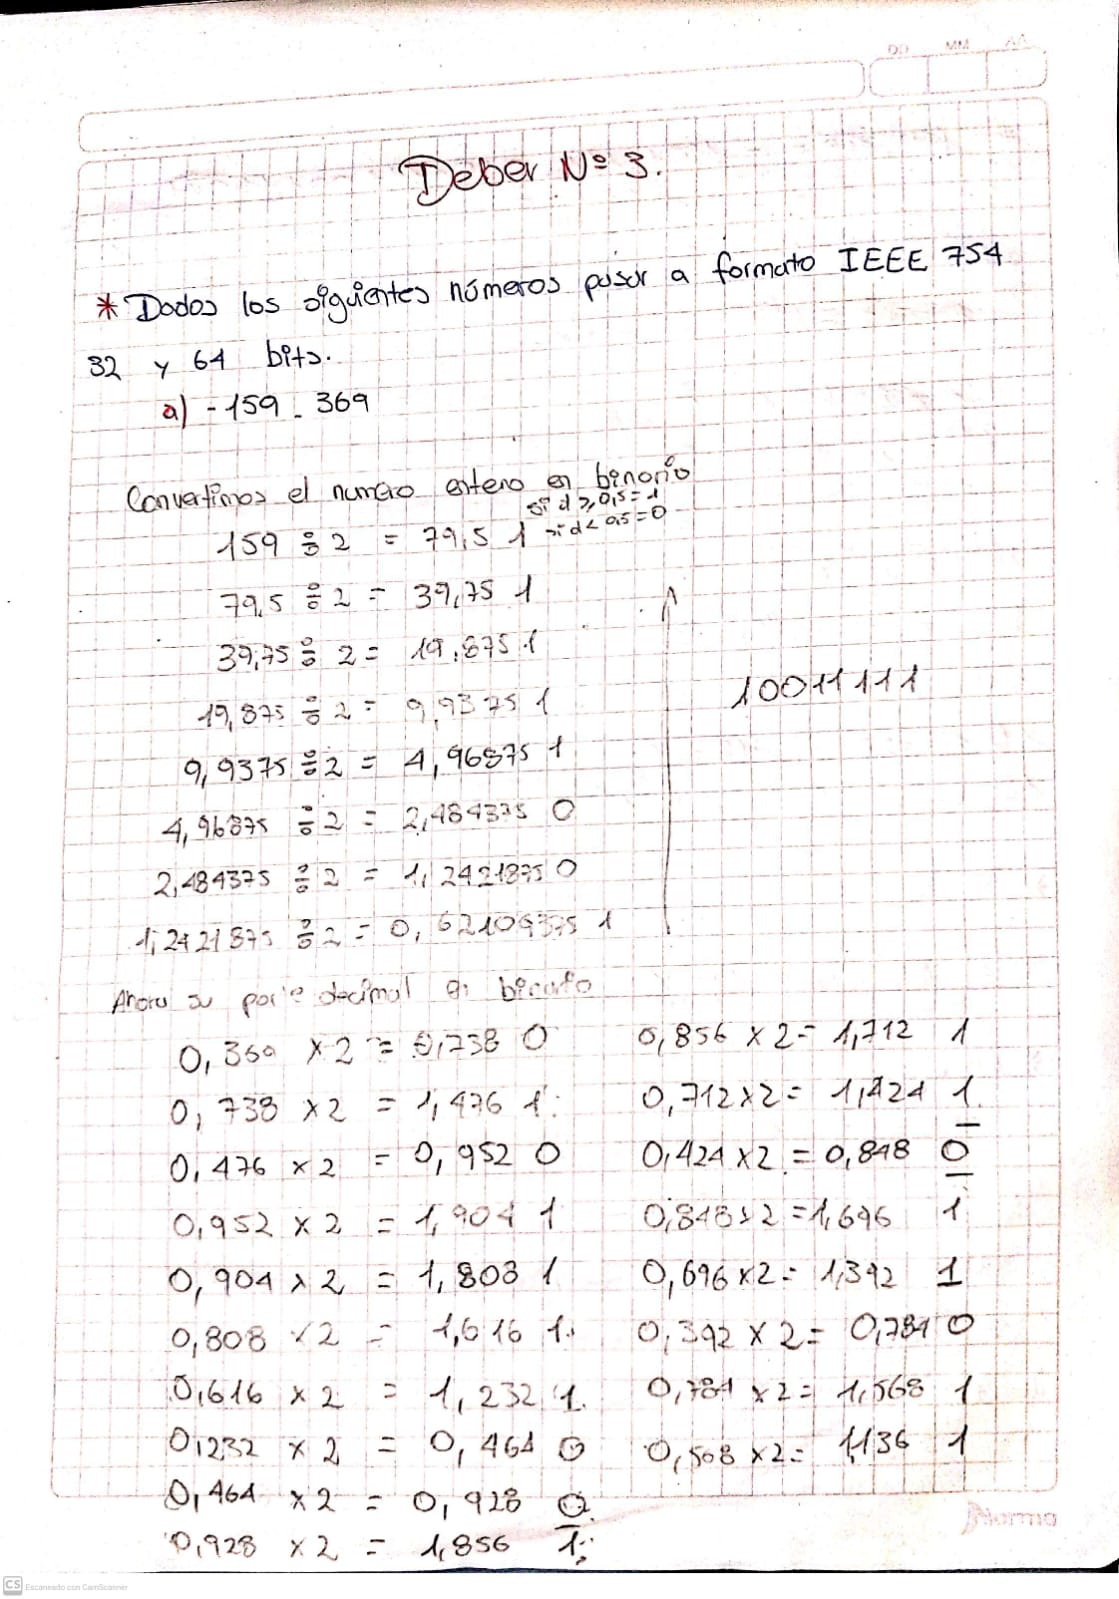 DD MM AA
Deber Nº 3.
* Dados los siguientes números pasar a formato IEEE 754
32 y 64 bits.
a) - 159 . 369
Convertimos el numero entero en binario
si d ≥ 0,5 = 1
si d < 0,5 = 0
159 ÷ 2 = 79,5 1
79,5 ÷ 2 = 39,75 1
39,75 ÷ 2 = 19,875 1
19,875 ÷ 2 = 9,9375 1
9,9375 ÷ 2 = 4,96875 1
4,96875 ÷ 2 = 2,484375 0
2,484375 ÷ 2 = 1,2421875 0
1,2421875 ÷ 2 = 0,62109375 1
10011111
Ahora su parte decimal a binario
0,369 x 2 = 0,738 0
0,738 x 2 = 1,476 1
0,476 x 2 = 0,952 0
0,952 x 2 = 1,904 1
0,904 x 2 = 1,808 1
0,808 x 2 = 1,616 1
0,616 x 2 = 1,232 1
0,232 x 2 = 0,464 0
0,464 x 2 = 0,928 0
0,928 x 2 = 1,856 1
0,856 x 2 = 1,712 1
0,712 x 2 = 1,424 1
0,424 x 2 = 0,848 0
0,848 x 2 = 1,696 1
0,696 x 2 = 1,392 1
0,392 x 2 = 0,784 0
0,784 x 2 = 1,568 1
0,568 x 2 = 1,136 1
Norma
CS Escaneado con CamScanner